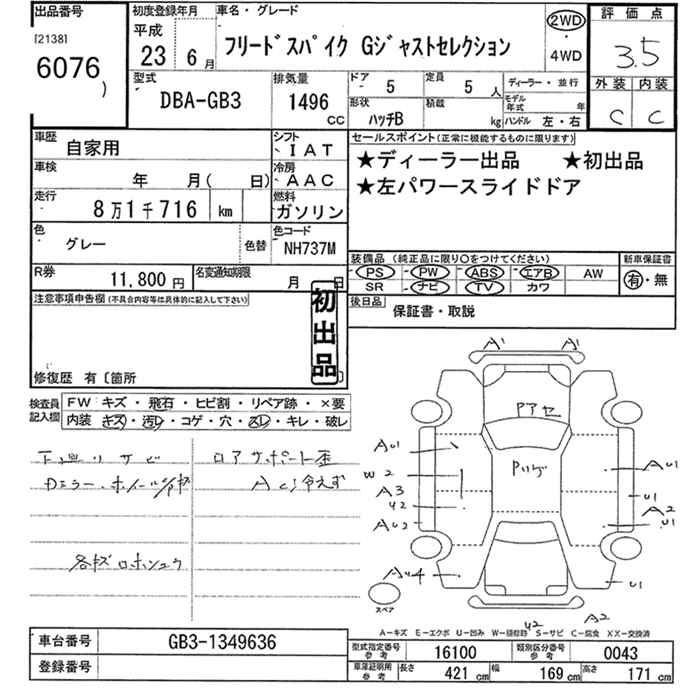 出品番号
[2138]
6076
初度登録年月
平成
23 6月
車名・グレード
フリードスパイク Gジャストセレクション
2WD
・
4WD
評価点
3.5
外装 内装
C C
型式
DBA-GB3
排気量
1496
CC
ドア
5
定員
5 人
ディーラー・並行
形状
ハッチB
積載
kg
モデル年式 年
ハンドル 左・右
車歴
自家用
シフト
IAT
車検
年 月( 日)
冷房
AAC
走行
8万1千716 km
燃料
ガソリン
色
グレー
色替
色コード
NH737M
R券
11,800円
名変通知期限
月 日
セールスポイント(正常に機能するものに限ります)
★ディーラー出品 ★初出品
★左パワースライドドア
装備品 (純正品に限り○をつけてください)
新車保証書
PS PW ABS エアB AW
SR ナビ TV カワ
有・無
後日品
保証書・取説
注意事項申告欄(不具合内容等は具体的に記入して下さい)
初出品
修復歴 有〔箇所
検査員
記入欄
FW キズ・飛石・ヒビ割・リペア跡・×要
内装 キズ・汚レ・コゲ・穴・スレ・キレ・破レ
下廻りサビ
ロアサポート歪
Dミラー・ホイール
AC冷えず
各キズ
A' A'
Pアセ
Pハゲ
AU1
W2
A3
U2
AU2
AU4
AU1
U1
A2
U1
U1
U2
A2
スペア
A-キズ E-エクボ U-凹み W-補修跡 S-サビ C-腐食 XX-交換済
車台番号
GB3-1349636
登録番号
型式指定番号
参考
16100
類別区分番号
参考
0043
車庫証明用
参考
長さ 421 cm
幅 169 cm
高さ 171 cm